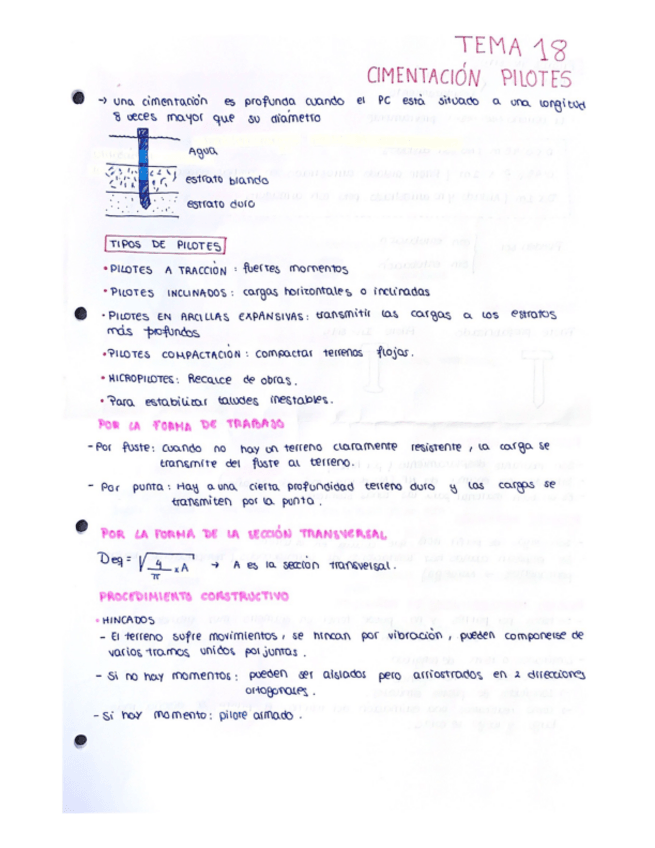 TEMA 18
CIMENTACIÓN, PILOTES
→ una cimentación es profunda cuando el PC está situado a una longitud
8 veces mayor que su diámetro
Agua
estrato blando
estrato duro
TIPOS DE PILOTES
• PILOTES A TRACCIÓN : fuertes momentos
• PILOTES INCLINADOS : cargas horizontales o inclinadas
• PILOTES EN ARCILLAS EXPANSIVAS: transmitir las cargas a los estratos
más profundos
• PILOTES COMPACTACIÓN : compactar terrenos flojos.
• MICROPILOTES: Recalce de obras.
• Para estabilizar taludes inestables.
POR LA FORMA DE TRABAJO
- Por fuste: cuando no hay un terreno claramente resistente, la carga se
transmite del fuste al terreno.
- Por punta : Hay a una cierta profundidad terreno duro y las cargas se
transmiten por la punta.
POR LA FORMA DE LA SECCIÓN TRANSVERSAL
Deq = √(4/π × A) → A es la sección transversal.
PROCEDIMIENTO CONSTRUCTIVO
• HINCADOS
- El terreno sufre movimientos, se hincan por vibración, pueden componerse de
varios tramos unidos por juntas.
- Si no hay momentos: pueden ser aislados pero arriostrados en 2 direcciones
ortogonales.
- Si hay momento: pilote armado.